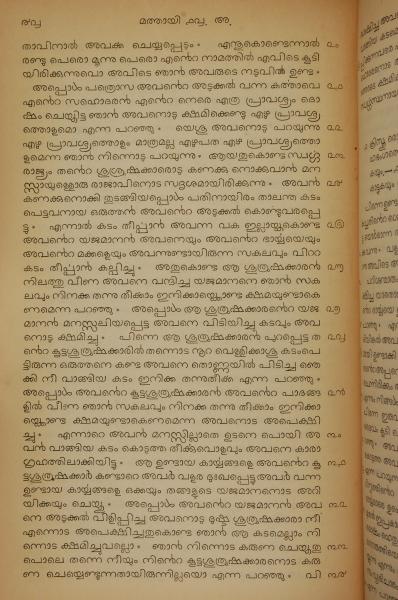 മത്തായി ൧൮. അ.
താവിനാൽ അവക്ക ചെയ്യപ്പെടും • എന്തുകൊണ്ടെന്നാൽ ൨൦
രണ്ടു പെരൊ മൂന്നു പെരൊ എന്റെ നാമത്തിൽ എവിടെ കൂടി
യിരിക്കുന്നുവൊ അവിടെ ഞാൻ അവരുടെ നടുവിൽ ഉണ്ട •
അപ്പൊൾ പത്രൊസ അവന്റെ അടുക്കൽ വന്ന കത്താവെ ൨൧
എന്റെ സഹൊദരൻ എന്റെ നെരെ എത്ര പ്രാവശ്യം ദൊ
ഷം ചെയ്തിട്ട ഞാൻ അവനൊട ക്ഷമിക്കെണ്ടു എഴ പ്രാവശ്യ
ത്തൊളമൊ എന്ന പറഞ്ഞു • യെശു അവനൊട പറയുന്നു ൨൨
എഴ പ്രാവശ്യത്തൊളം മാത്രമല്ല എഴുപത എഴ പ്രാവശ്യത്തൊ
ളമെന്ന ഞാൻ നിന്നൊട പറയുന്നു • ആയതുകൊണ്ട സ്വൎഗ്ഗ ൨൩
രാജ്യം തന്റെ ശുശ്രൂഷക്കാരൊട കണക്ക നൊക്കുവാൻ മന
സ്സായുള്ളൊരു രാജാവിനൊട സദൃശമായിരിക്കുന്നു • അവൻ ൨൪
കണക്കുനൊക്കി തുടങ്ങിയപ്പൊൾ പതിനായിരം താലന്ത കടം
പെട്ടവനായ ഒരുത്തൻ അവന്റെ അടുക്കൽ കൊണ്ടുവരപ്പെ
ട്ടു • എന്നാൽ കടം തീപ്പാൻ അവന്ന വക ഇല്ലായ്കകൊണ്ട ൨൫
അവന്റെ യജമാനൻ അവനെയും അവന്റെ ഭാൎയ്യയെയും
അവന്റെ മക്കളെയും അവന്നുണ്ടായിരുന്ന സകലവും വിറ്റ
കടം തീപ്പാൻ കല്പിച്ചു • അതുകൊണ്ട ആ ശുശ്രൂഷക്കാരൻ ൨൬
നിലത്തു വീണ അവനെ വന്ദിച്ചു യജമാനനെ ഞാൻ സക
ലവും നിനക്ക തന്നു തീക്കാം ഇനിക്കായ്ക്കൊണ്ട ക്ഷമയുണ്ടാകെ
ണമെന്ന പറഞ്ഞു • അപ്പൊൾ ആ ശുശ്രൂഷക്കാരന്റെ യജ ൨൭
മാനൻ മനസ്സലിയപ്പെട്ട അവനെ വിടിയിച്ചു കടവും അവ
നൊട ക്ഷമിച്ചു • പിന്നെ ആ ശുശ്രൂഷക്കാരൻ പുറപ്പെട്ട ത ൨൮
ന്റെ കൂട്ടുശുശ്രൂഷക്കാരിൽ തന്നൊട നൂറ വെള്ളിക്കാശു കടംപെ
ട്ടിരുന്ന ഒരുത്തനെ കണ്ട അവനെ തൊണ്ടയിൽ പിടിച്ചു ഞെ
ക്കി നീ വാങ്ങിയ കടം ഇനിക്ക തന്നുതീക്ക എന്ന പറഞ്ഞു •
അപ്പൊൾ അവന്റെ കൂട്ടുശുശ്രൂഷക്കാരൻ അവന്റെ പാദങ്ങ ൨൯
ളിൽ വീണ ഞാൻ സകലവും നിനക്ക തന്നു തീക്കാം ഇനിക്കാ
യ്ക്കൊണ്ട ക്ഷമയുണ്ടാകെണമെന്ന അവനൊട അപെക്ഷി
ച്ചു • എന്നാറെ അവൻ മനസ്സില്ലാതെ ഉടനെ പൊയി അ ൩൦
വൻ വാങ്ങിയ കടം കൊടുത്ത തീക്കുവൊളവും അവനെ കാരാ
ഗൃഹത്തിലാക്കിയിട്ടു • ആ ഉണ്ടായ കാൎയ്യങ്ങളെ അവന്റെ കൂ ൩൧
ട്ടുശുശ്രൂഷക്കാർ കണ്ടാറെ അവർ വളര ദുഃഖപ്പെട്ടു അവർ വന്ന
ഉണ്ടായ കാൎയ്യങ്ങളെ ഒക്കയും തങ്ങളുടെ യജമാനനൊട അറി
യിക്കയും ചെയ്തു • അപ്പൊൾ അവന്റെ യജമാനൻ അവ ൩൨
നെ അടുക്കൽ വിളിപ്പിച്ചു അവനൊട ദുഷ്ട ശുശ്രൂഷക്കാരാ നീ
എന്നൊട അപെക്ഷിച്ചതുകൊണ്ട ഞാൻ ആ കടമെല്ലാം നി
ന്നൊട ക്ഷമിച്ചുവല്ലൊ • ഞാൻ നിന്നൊട കരുണ ചെയ്തതു ൩൩
പൊലെ തന്നെ നീയും നിന്റെ കൂട്ടുശുശ്രൂഷക്കാരനൊട കരു
ണ ചെയ്യെണ്ടുന്നതായിരുന്നില്ലയൊ എന്ന പറഞ്ഞു • പി ൩൪